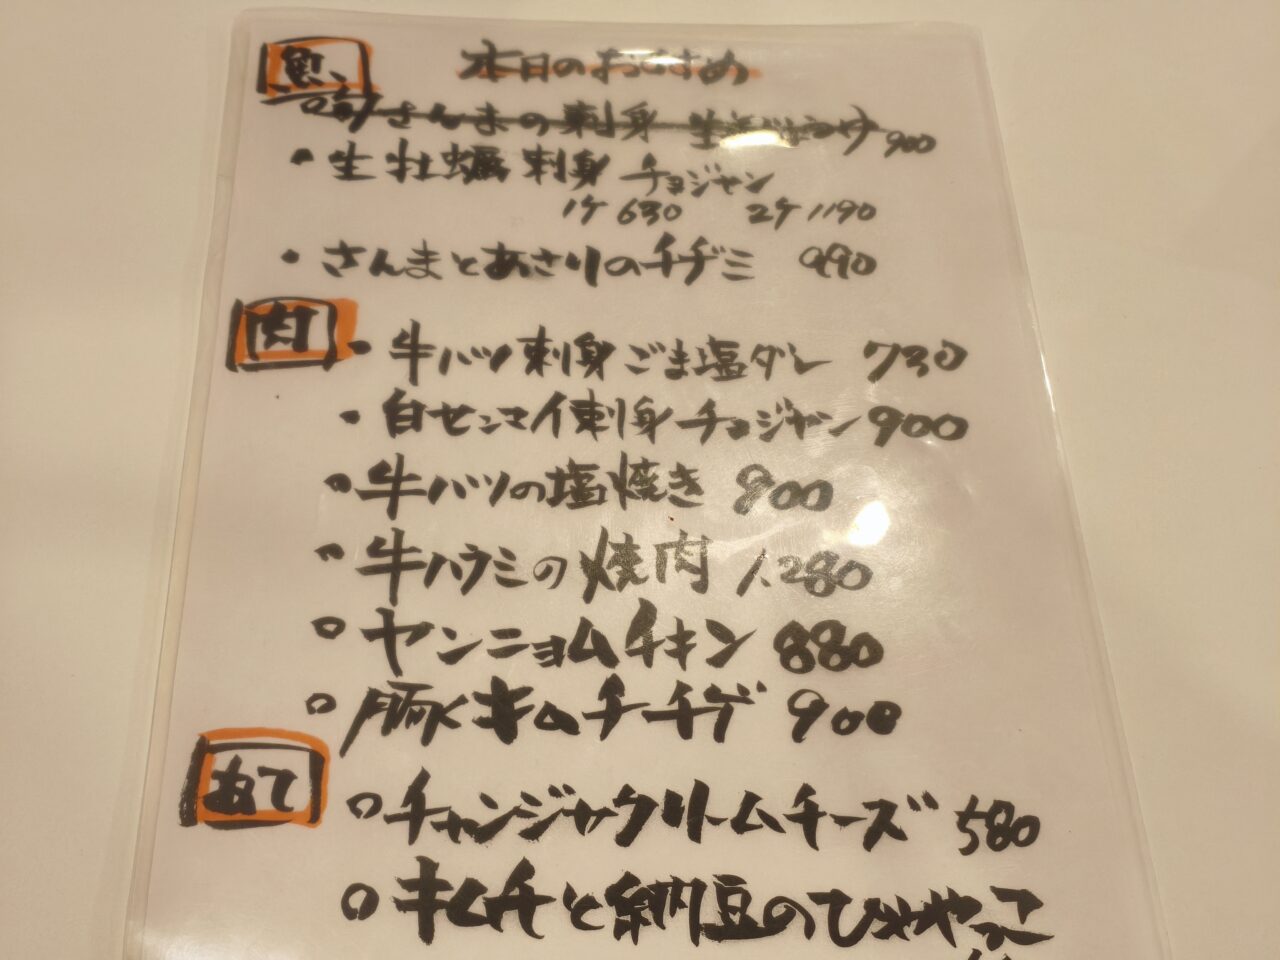 本日のおすすめ
魚
旬さんまの刺身 900
・生牡蠣刺身 チョジャン
1ケ 630 2ケ 1190
・さんまとあさりのチヂミ 990
肉
・牛ハツ刺身ごま塩ダレ 730
・白センマイ刺身チョジャン 900
・牛ハツの塩焼き 900
・牛ハラミの焼肉 1,280
○ヤンニョムチキン 880
○豚バキムチチゲ 900
あて
○チャンジャクリームチーズ 580
○キムチと納豆のひややっこ